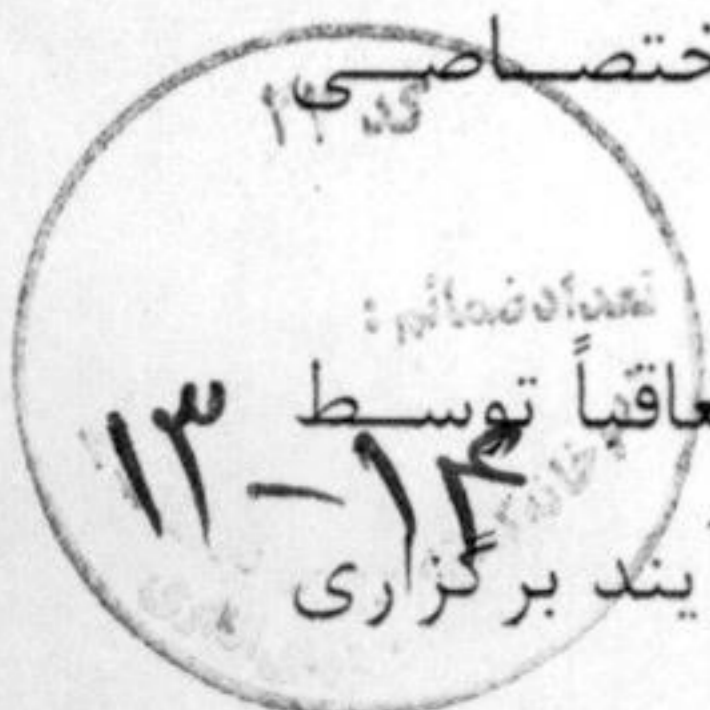 ختصاصی
کد ۲۲
تعداد ضمائم:
عاقباً توسط
۱۳-۱۴
یند برگزاری